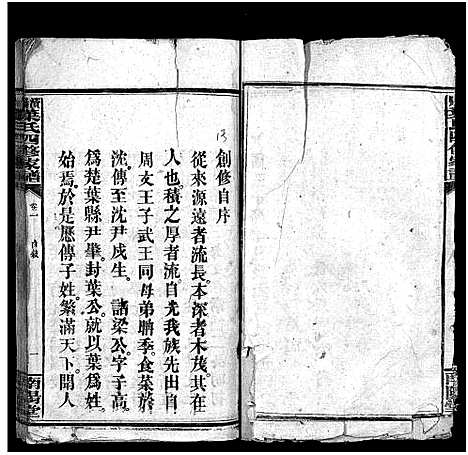 創修自序
從來源遠者流長本深者木茂其在
人也積之厚者流自光我族先出自
周文王子武王同母弟聃季食菜於
沈傳至沈尹戌生 諸梁公字子高
為楚葉縣尹肇封葉公就以葉為姓
始焉於是歷傳子姓繁滿天下開人
葉氏四修家譜
卷一
自敘
一
南陽堂